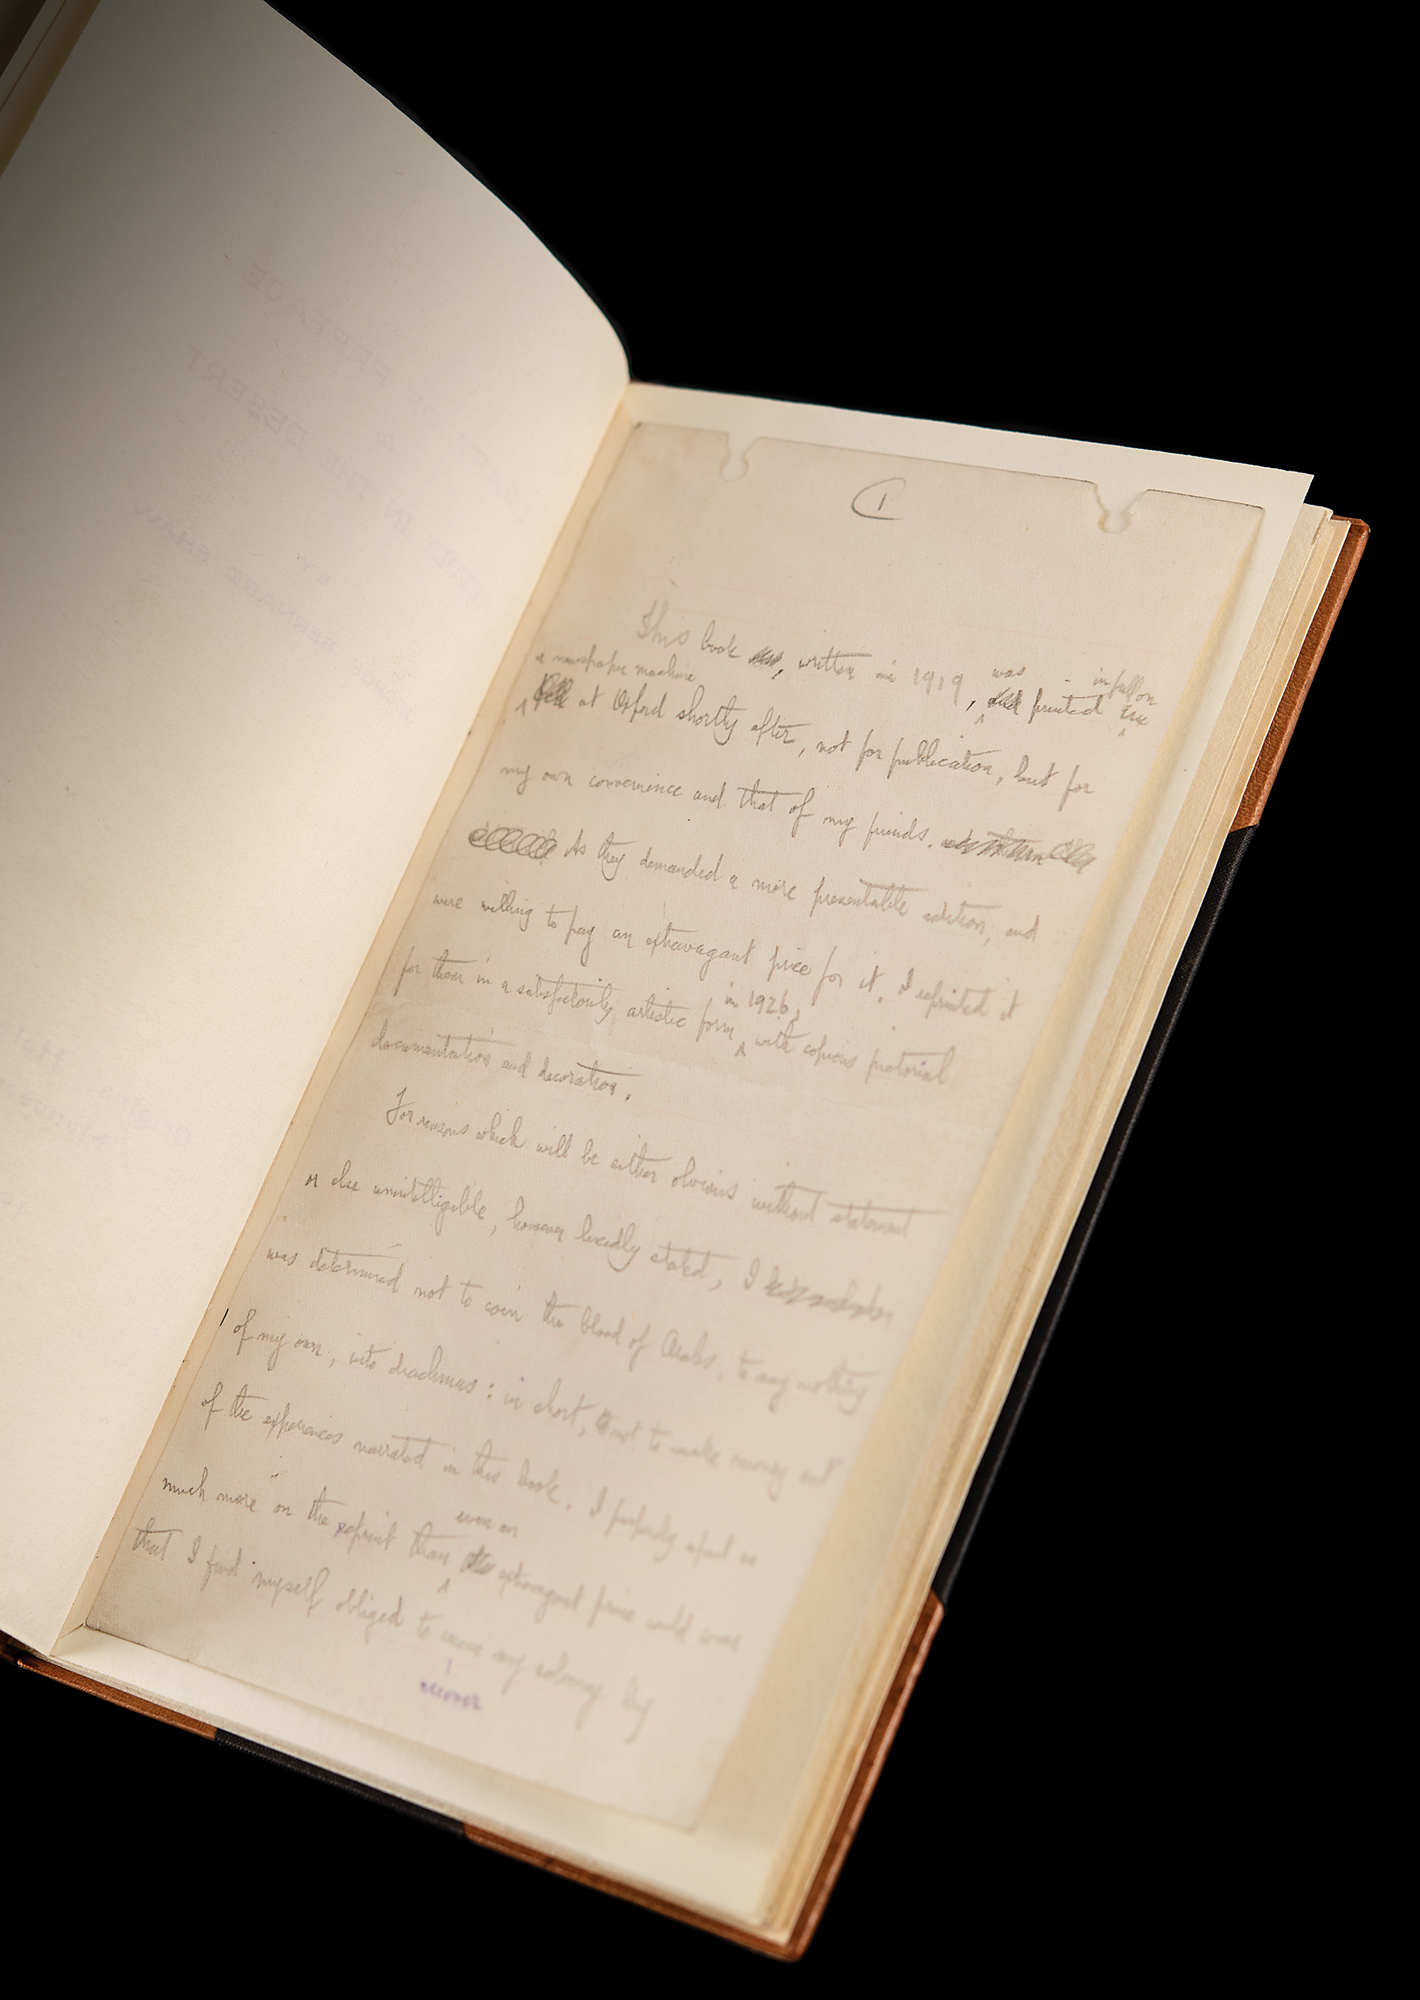 1
This book, written in 1919, was printed in full on
a newspaper machine at Oxford shortly after, not for publication, but for
my own convenience and that of my friends.
As they demanded a more presentable edition, and
were willing to pay an extravagant price for it, I reprinted it
for them in a satisfactorily artistic form in 1926, with copious pictorial
documentation and decoration.
For reasons which will be either obvious without statement
or else unintelligible, however lucidly stated, I
was determined not to coin the blood of Arabs, to say nothing
of my own, into drachmas: in short, not to make money out
of the experiences narrated in this book. I
much more on the reprint than even an extravagant price would cover
that I find myself obliged to my solvency by
recover